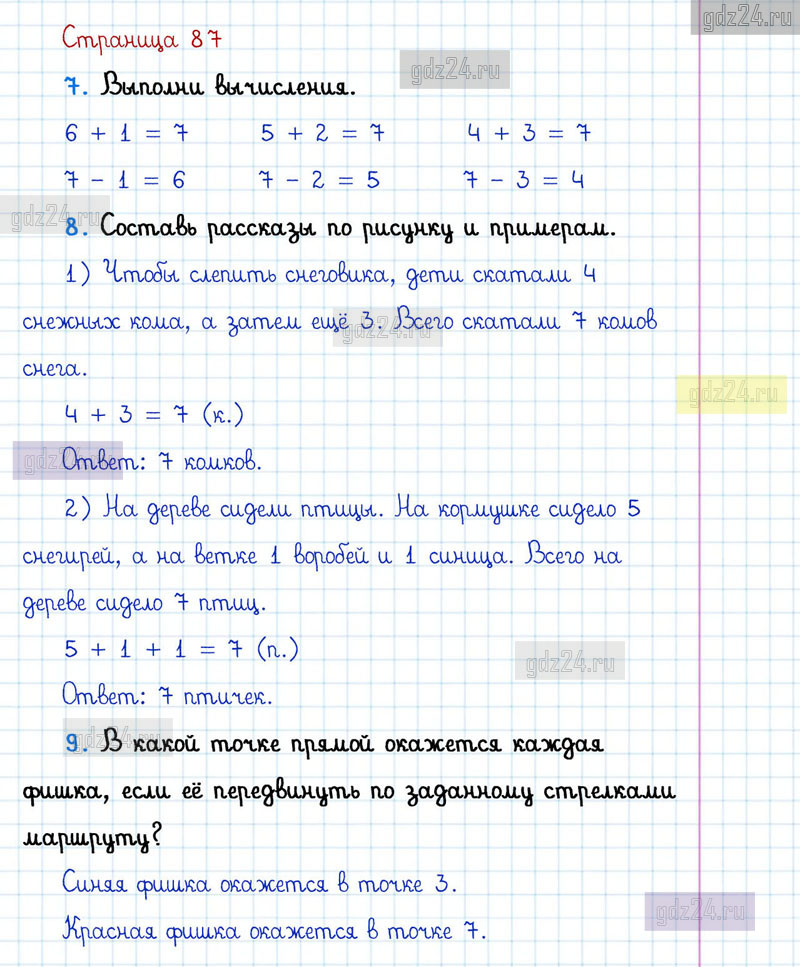 gdz24.ru
Страница 87
gdz24.ru
7. Выполни вычисления.
6 + 1 = 7 5 + 2 = 7 4 + 3 = 7
7 - 1 = 6 7 - 2 = 5 7 - 3 = 4
gdz24.ru
8. Составь рассказы по рисунку и примерам.
1) Чтобы слепить снеговика, дети скатали 4
снежных кома, а затем ещё 3. Всего скатали 7 комов
gdz24.ru
снега.
gdz24.ru
4 + 3 = 7 (к.)
gdz24.ru
Ответ: 7 комков.
2) На дереве сидели птицы. На кормушке сидело 5
снегирей, а на ветке 1 воробей и 1 синица. Всего на
дереве сидело 7 птиц.
5 + 1 + 1 = 7 (п.)
gdz24.ru
Ответ: 7 птичек.
gdz24.ru
9. В какой точке прямой окажется каждая
фишка, если её передвинуть по заданному стрелками
маршруту?
Синяя фишка окажется в точке 3.
gdz24.ru
Красная фишка окажется в точке 7.